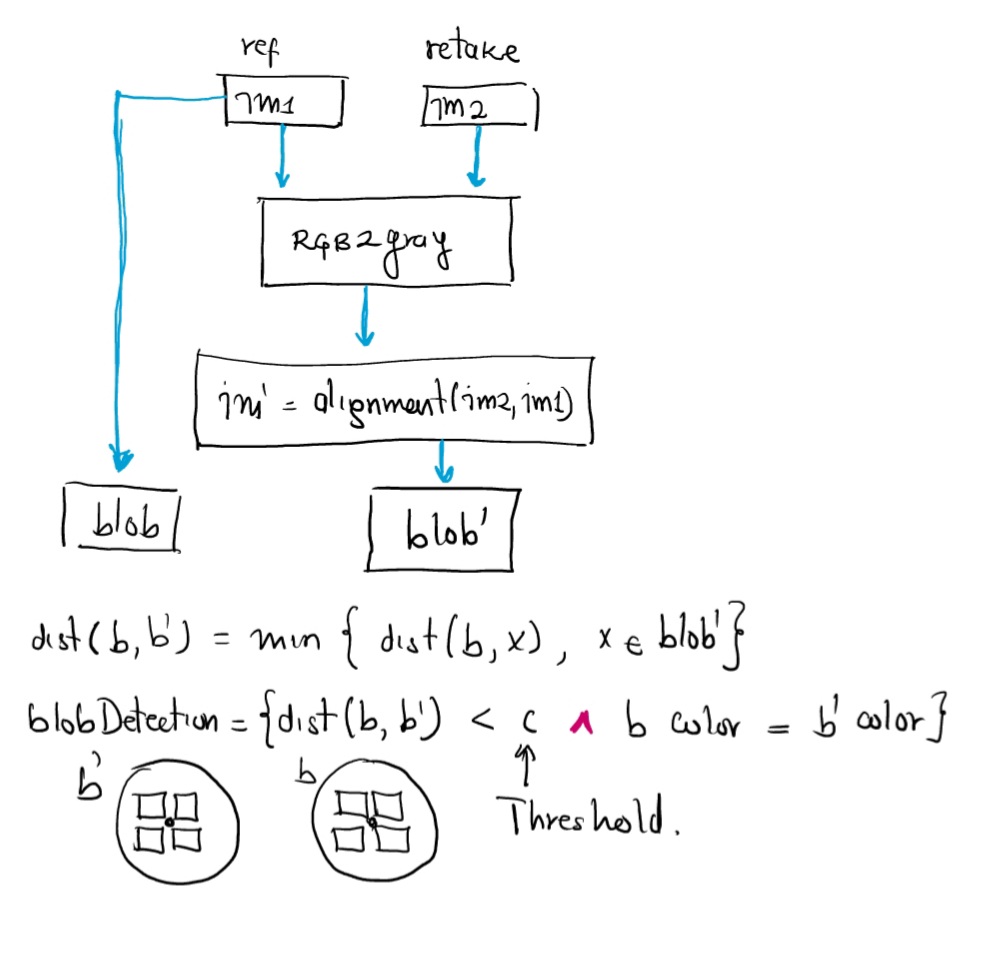 ref
retake
im1
im2
RGB2gray
im' = alignment(im2, im1)
blob
blob'
dist(b, b') = min { dist(b, x), x ∈ blob' }
blobDetection = {dist(b, b') < c ∧ b color = b' color}
b'
b
Threshold.